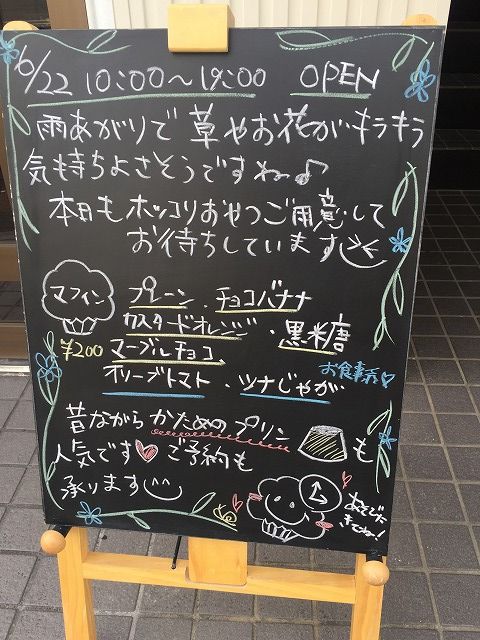 6/22 10:00〜19:00 OPEN
雨あがりで草やお花がキラキラ
気持ちよさそうですね♪
本日もホッコリおやつご用意して
お待ちしています
マフィン
プレーン・チョコバナナ
カスタードオレンジ・黒米糖
¥200 マーブルチョコ、
オリーブトマト・ツナじゃが
お食事系♡
昔ながらかためのプリンも
人気です♡ご予約も
承ります
あそびに
きてね!